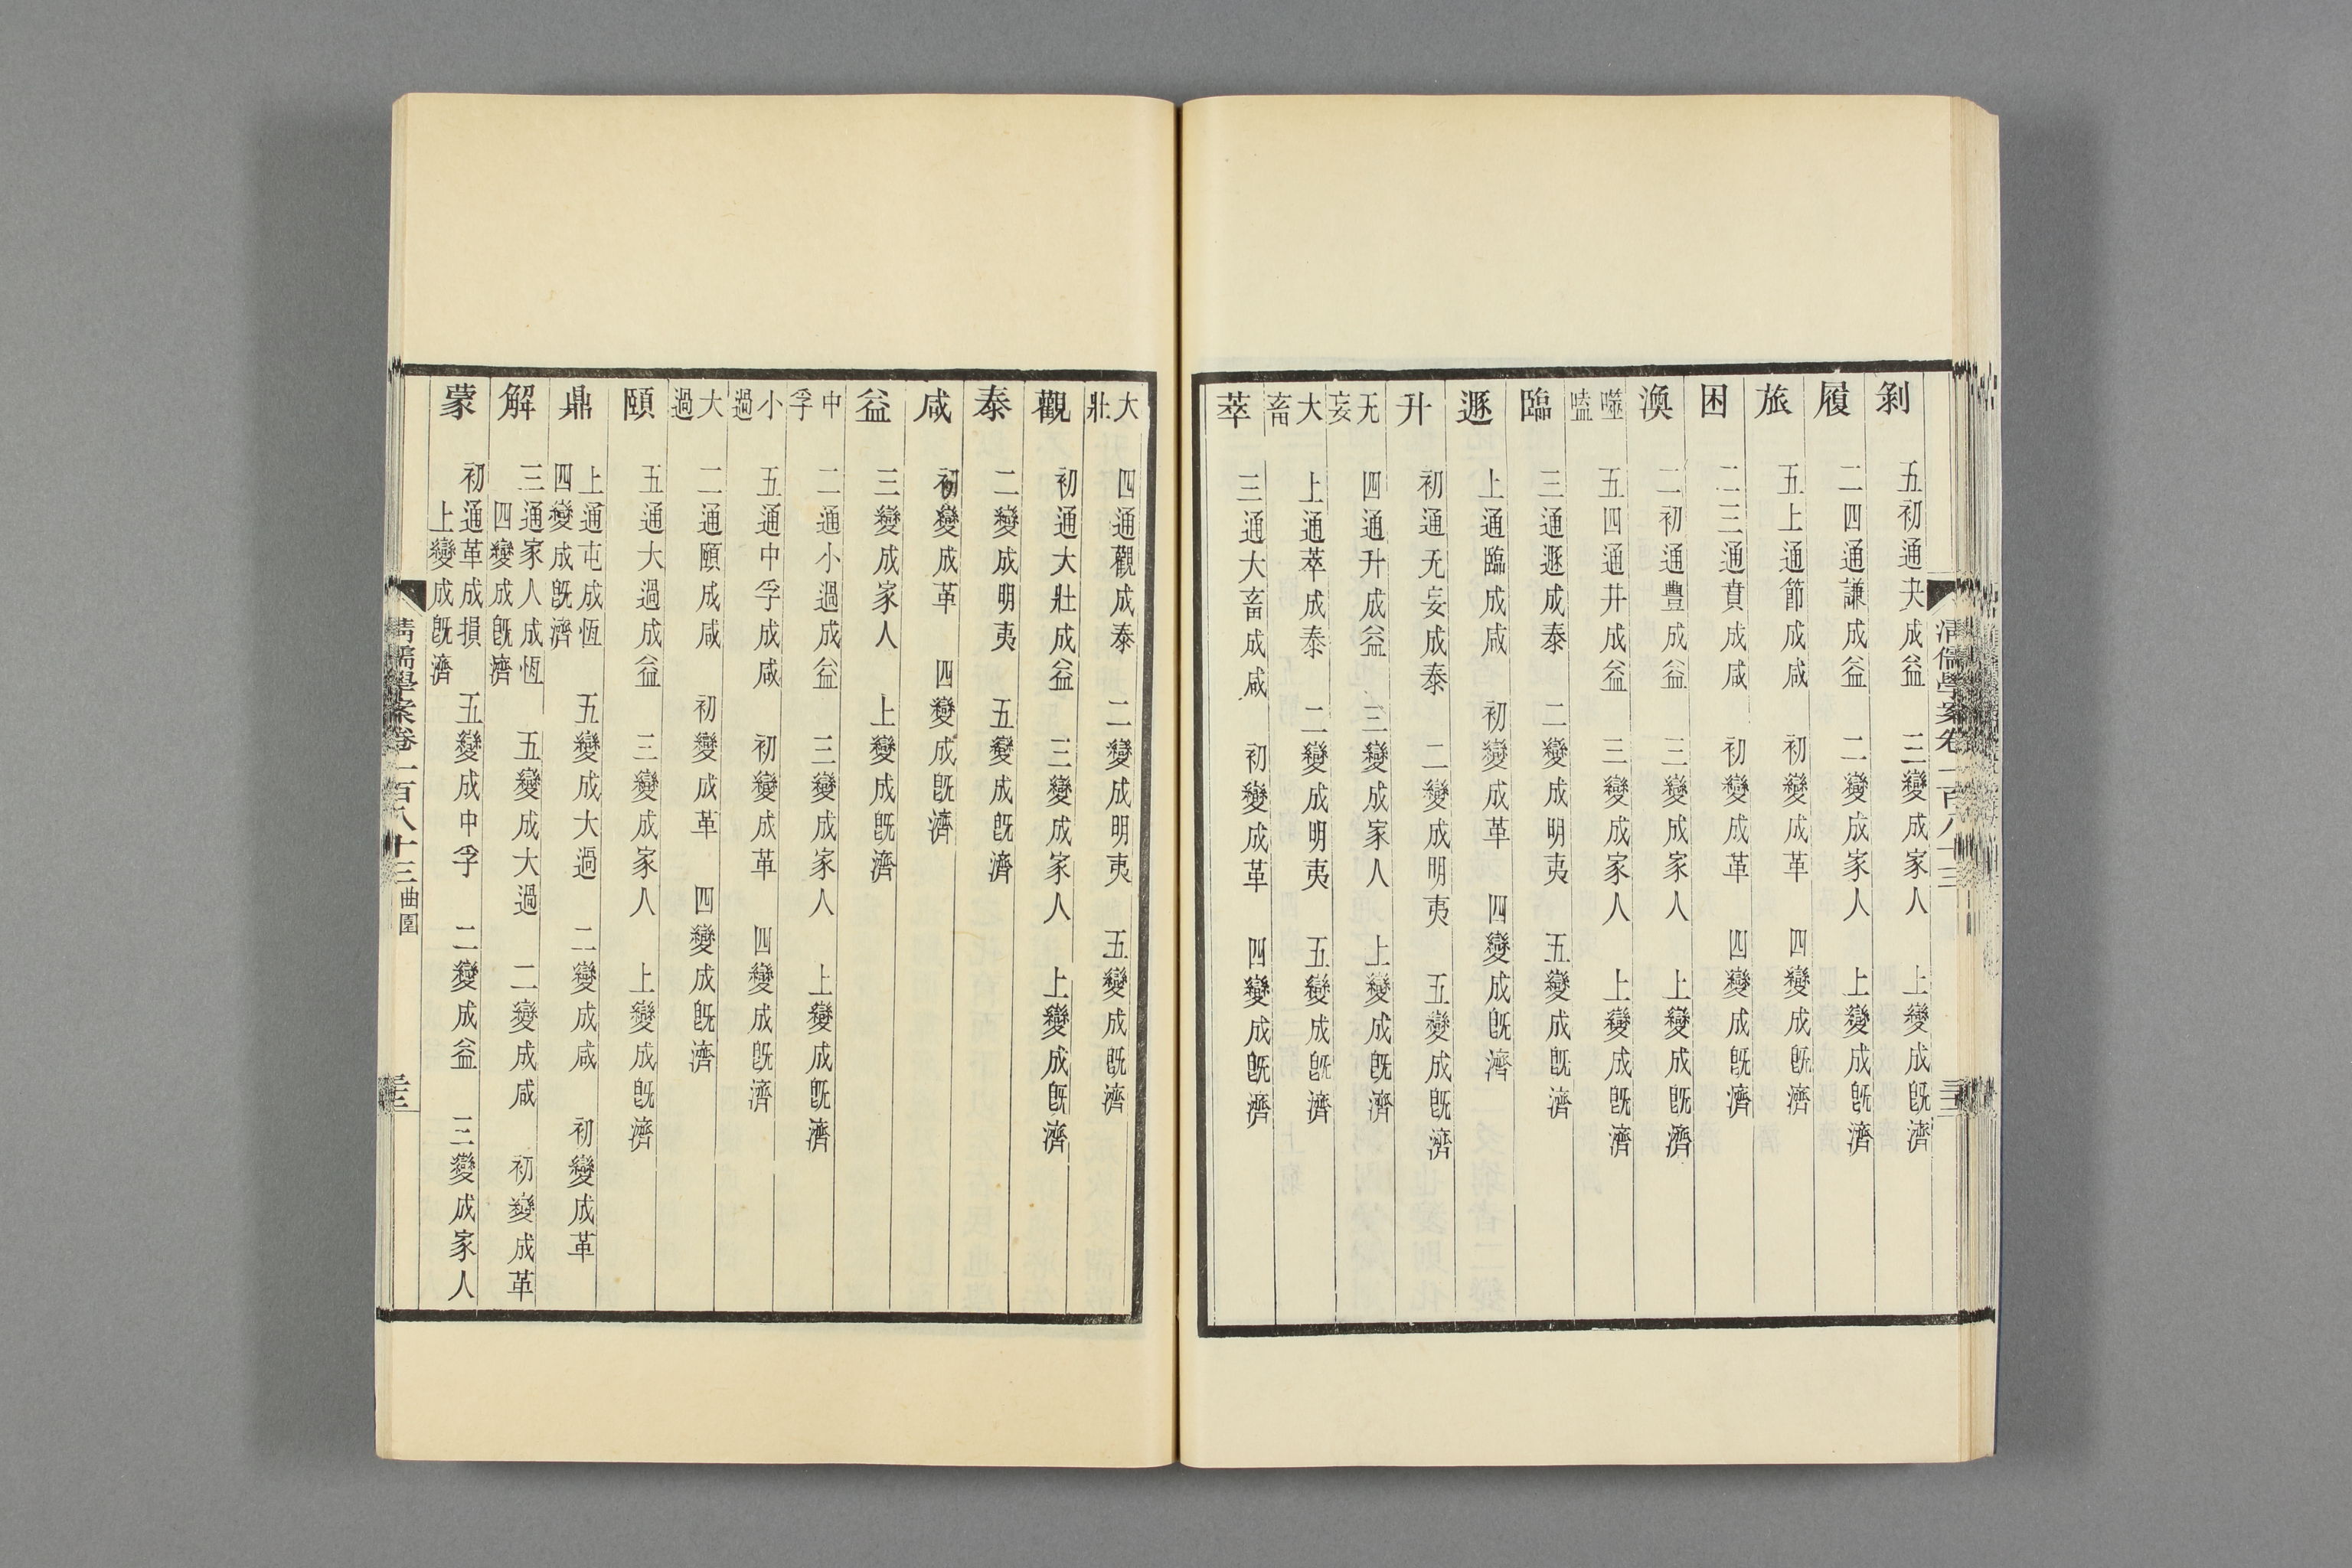 剝 五初通夬成益 三變成家人 上變成旣濟
履 二四通謙成益 二變成家人 上變成旣濟
旅 五上通節成咸 初變成革 四變成旣濟
困 二三通賁成咸 初變成革 四變成旣濟
渙 二初通豐成益 三變成家人 上變成旣濟
噬嗑 五四通井成益 三變成家人 上變成旣濟
臨 三通遯成泰 二變成明夷 五變成旣濟
遯 上通臨成咸 初變成革 四變成旣濟
升 初通无妄成泰 二變成明夷 五變成旣濟
无妄 四通升成益 三變成家人 上變成旣濟
大畜 上通萃成泰 二變成明夷 五變成旣濟
萃 三通大畜成咸 初變成革 四變成旣濟
清儒學案卷一百八十三
大壯 四通觀成泰 二變成明夷 五變成旣濟
觀 初通大壯成益 三變成家人 上變成旣濟
泰 二變成明夷 五變成旣濟
咸 初變成革 四變成旣濟
益 三變成家人 上變成旣濟
中孚 二通小過成益 三變成家人 上變成旣濟
小過 五通中孚成咸 初變成革 四變成旣濟
大過 二通頤成咸 初變成革 四變成旣濟
頤 五通大過成益 三變成家人 上變成旣濟
鼎 上通屯成恆 五變成大過 二變成咸 初變成革
四變成旣濟
解 三通家人成恆 五變成大過 二變成咸 初變成革
四變成旣濟
蒙 初通革成損 五變成中孚 二變成益 三變成家人
上變成旣濟
清儒學案卷一百八十三 曲園